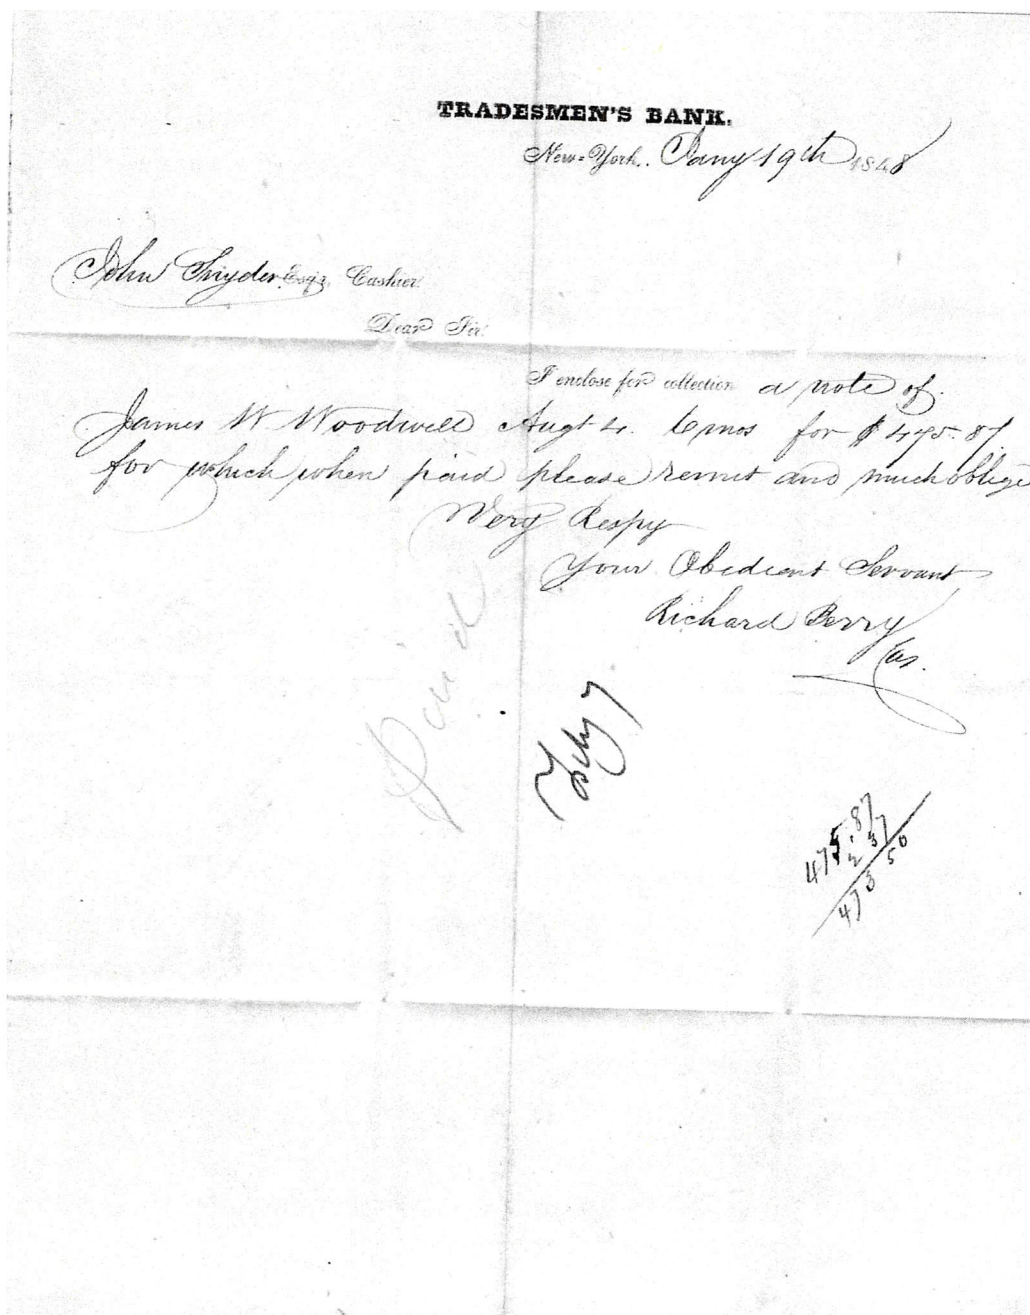 TRADESMEN'S BANK.
New-York. Jany 19th 1848
John Snyder Esqr. Cashier
Dear Sir
I enclose for collection a note of
James W Woodwell Augt 4. 6 mos for $475.87
for which when paid please remit and much oblige
Very Respy
Your Obedient Servant
Richard Berry
Cas.
Paid
Feby 7
475.87
2 37
473 50